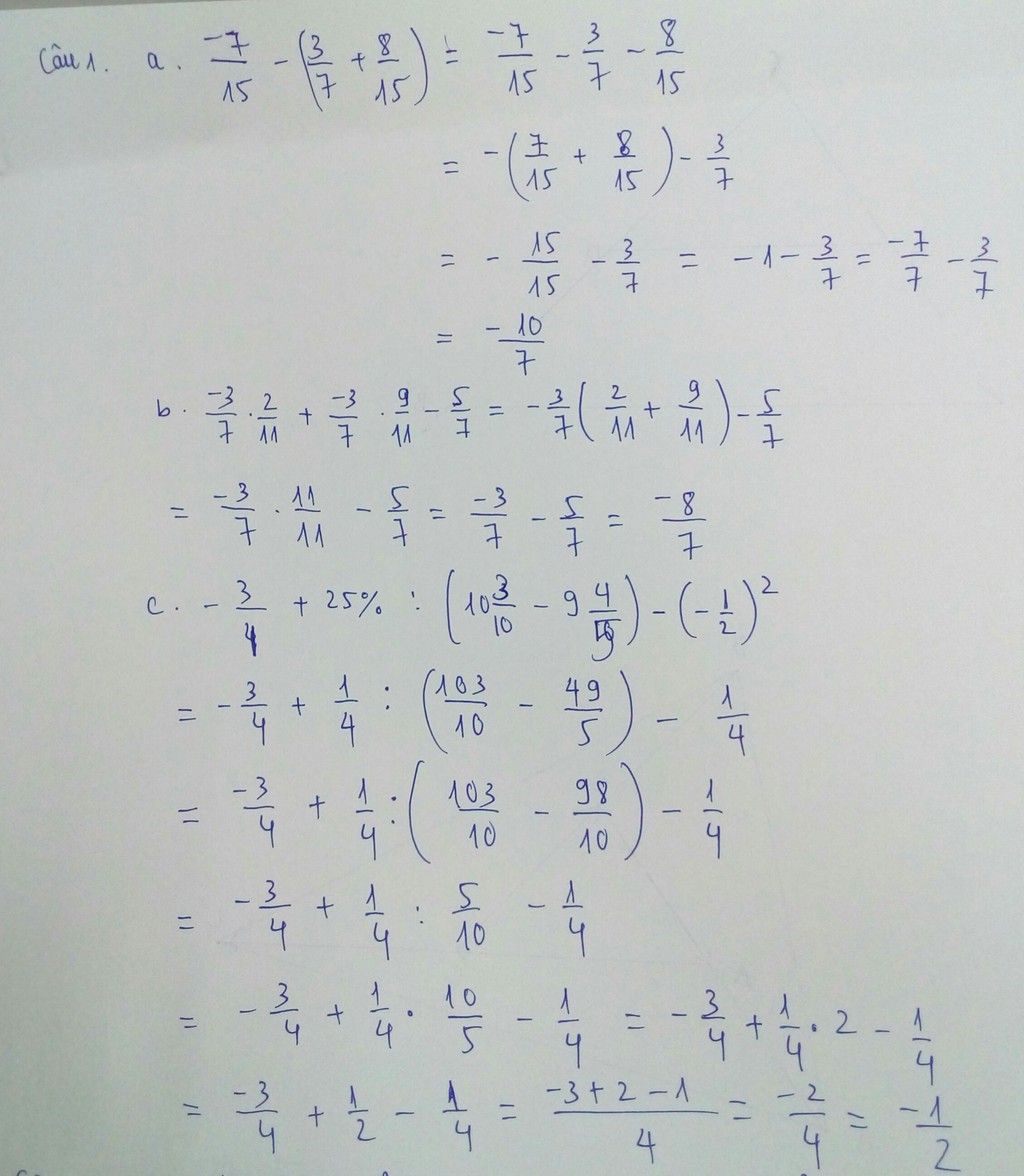 Câu 1. a. -7/15 - (3/7 + 8/15) = -7/15 - 3/7 - 8/15
= -(7/15 + 8/15) - 3/7
= - 15/15 - 3/7 = -1 - 3/7 = -7/7 - 3/7
= -10/7
b. -3/7 . 2/11 + -3/7 . 9/11 - 5/7 = -3/7 (2/11 + 9/11) - 5/7
= -3/7 . 11/11 - 5/7 = -3/7 - 5/7 = -8/7
c. -3/4 + 25% : (10 3/10 - 9 4/5) - (-1/2)²
= -3/4 + 1/4 : (103/10 - 49/5) - 1/4
= -3/4 + 1/4 : (103/10 - 98/10) - 1/4
= -3/4 + 1/4 : 5/10 - 1/4
= -3/4 + 1/4 . 10/5 - 1/4 = -3/4 + 1/4 . 2 - 1/4
= -3/4 + 1/2 - 1/4 = -3+2-1/4 = -2/4 = -1/2